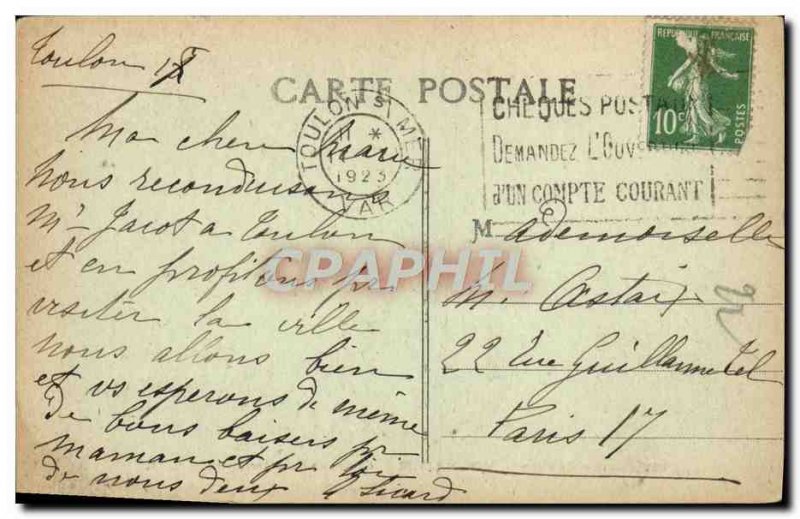 Toulon
CARTE POSTALE
Ma chère Marie
nous reconduisons
Mr Jacot a Toulon
et en profitons pr
visiter la ville
nous allons bien
et vs esperons de même
de bons baisers pr
maman et pr toi
de nous deux Sicard
TOULON S MER
1923
VAR
CHEQUES POSTAUX
DEMANDEZ L'OUVERTURE
d'UN COMPTE COURANT
REPUBLIQUE FRANÇAISE
10c
POSTES
Mademoiselle
M. Astaix
22 rue Guillaume Tel
Paris 17
CPAPHIL